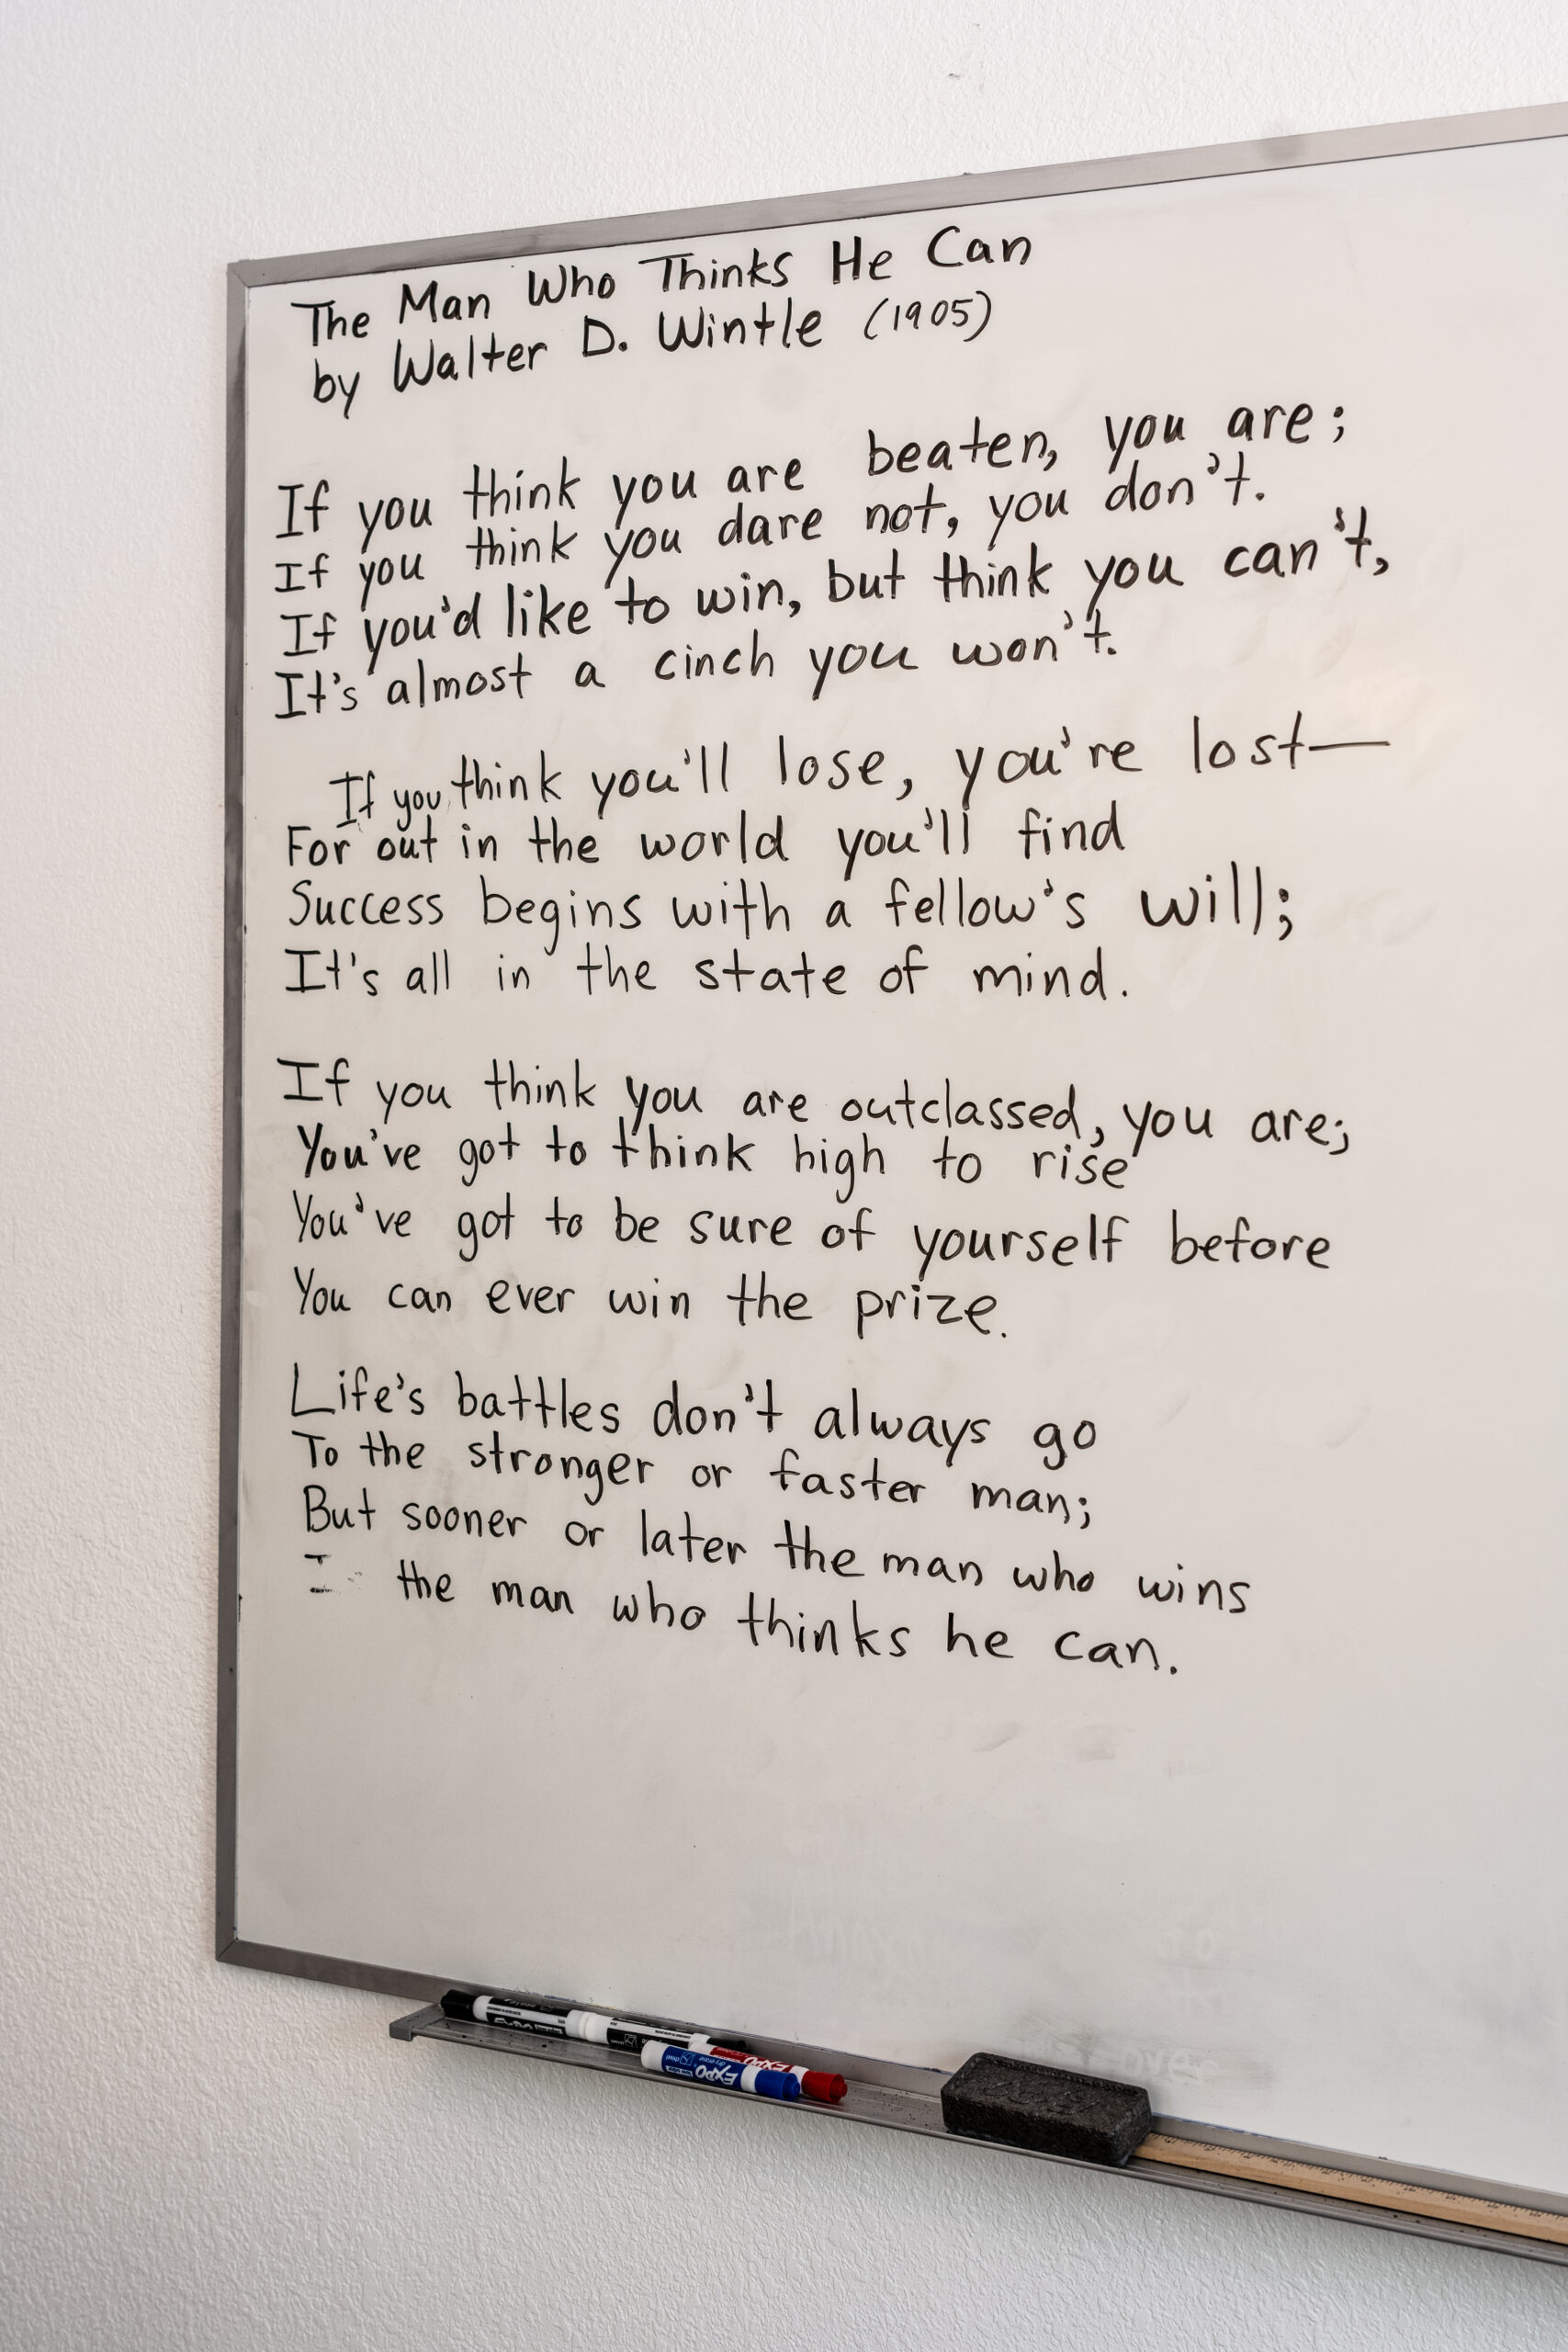 The Man Who Thinks He Can
by Walter D. Wintle (1905)
If you think you are beaten, you are;
If you think you dare not, you don't.
If you'd like to win, but think you can't,
It's almost a cinch you won't.
If you think you'll lose, you're lost—
For out in the world you'll find
Success begins with a fellow's will;
It's all in the state of mind.
If you think you are outclassed, you are;
You've got to think high to rise
You've got to be sure of yourself before
You can ever win the prize.
Life's battles don't always go
To the stronger or faster man;
But sooner or later the man who wins
the man who thinks he can.
EXPO
EXPO
EXPO